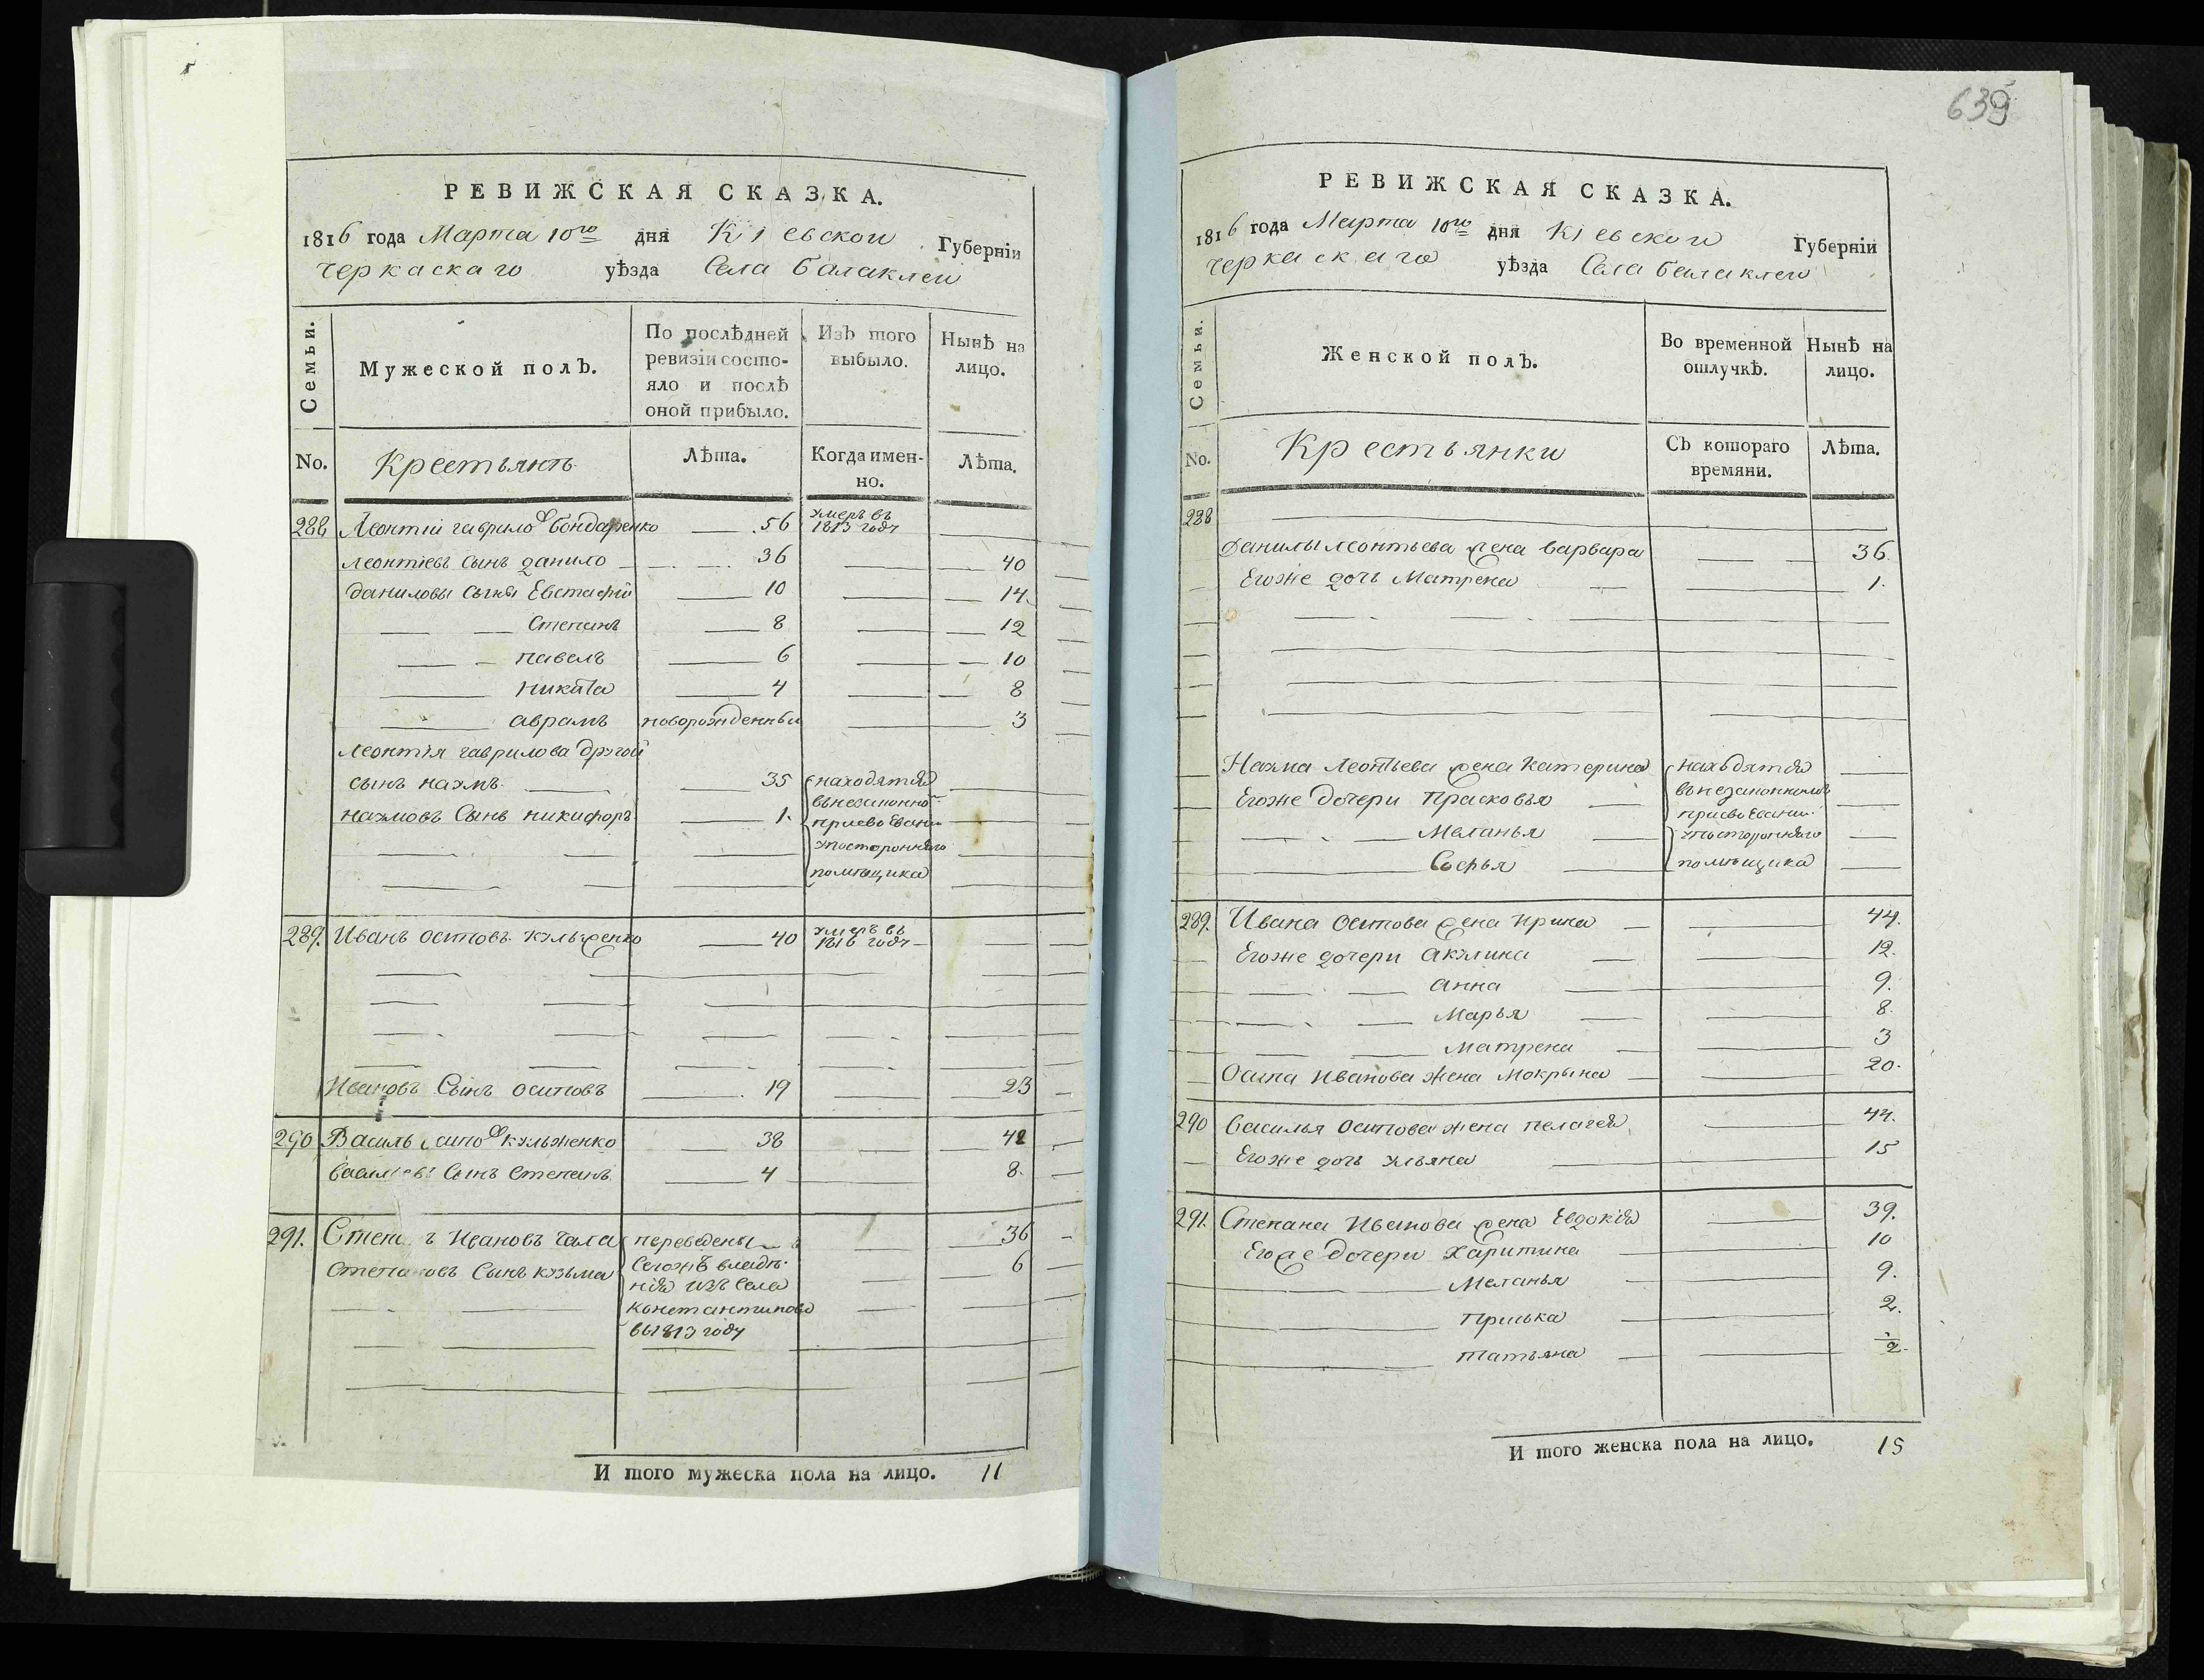 639
РЕВИЖСКАЯ СКАЗКА.
1816 года Марта 10го дня Кіевской Губерніи
Черкаскаго уѣзда Села Балаклеи
Семьи.
Мужеской полЪ.
По послѣдней ревизіи состо-
яло и послѣ
оной прибыло.
ИзЪ того
выбыло.
Нынѣ на
лицо.
No.
Крестьянъ
Лѣта.
Когда имен-
но.
Лѣта.
288 Леонтій гаврилов Бондаренко 56 умеръ въ 1813 году
леонтіевъ сынъ данило 36 40
даниловы сыны Евстафій 10 14
Степанъ 8 12
павелъ 6 10
никита 4 8
аврамъ новорожденный 3
леонтія гаврилова другой
сынъ наумъ 35 находятся
наумовъ Сынъ никифоръ 1. въ незаконно
присвоеніи
у посторонняго
помѣщика
289. Иванъ осиповъ кульженко 40 умеръ въ 1816 году
Ивановъ Сынъ осиповъ 19 23
290 Василь осипов кульженко 38 42
Сынъ Степанъ 4 8
291. Ивановъ Чала переведены 36
Сынъ кузьма Сегожъ владѣ- 6
нія изъ Села
константинова
въ 1813 году
И того мужеска пола на лицо. 11
РЕВИЖСКАЯ СКАЗКА.
1816 года Марта 10го дня Кіевской Губерніи
Черкаскаго уѣзда Села балаклеи
Семьи.
Женской полЪ.
Во временной
отлучкѣ.
Нынѣ на
лицо.
No.
Крестьянки
СЪ котораго
времяни.
Лѣта.
288
Данилы леонтьева жена варвара 36.
Егоже дочь Матрена 1.
Наума леонтьева жена катерина находятся
Егоже дочери Прасковья въ незаконномъ
присвоеніи
Меланья у посторонняго
Софья помѣщика
289. Ивана осипова жена ирина 44.
Егоже дочери акулина 12.
анна 9.
Марья 8.
Матрена 3
Осипа иванова жена Мокрына 20.
290 Василья осипова жена пелагея 44.
Егоже дочь ульяна 15
291. Степана Иванова жена Евдокія 39.
Егоже дочери Харитина 10
Меланья 9.
Приська 2.
татьяна ½.
И того женска пола на лицо. 15